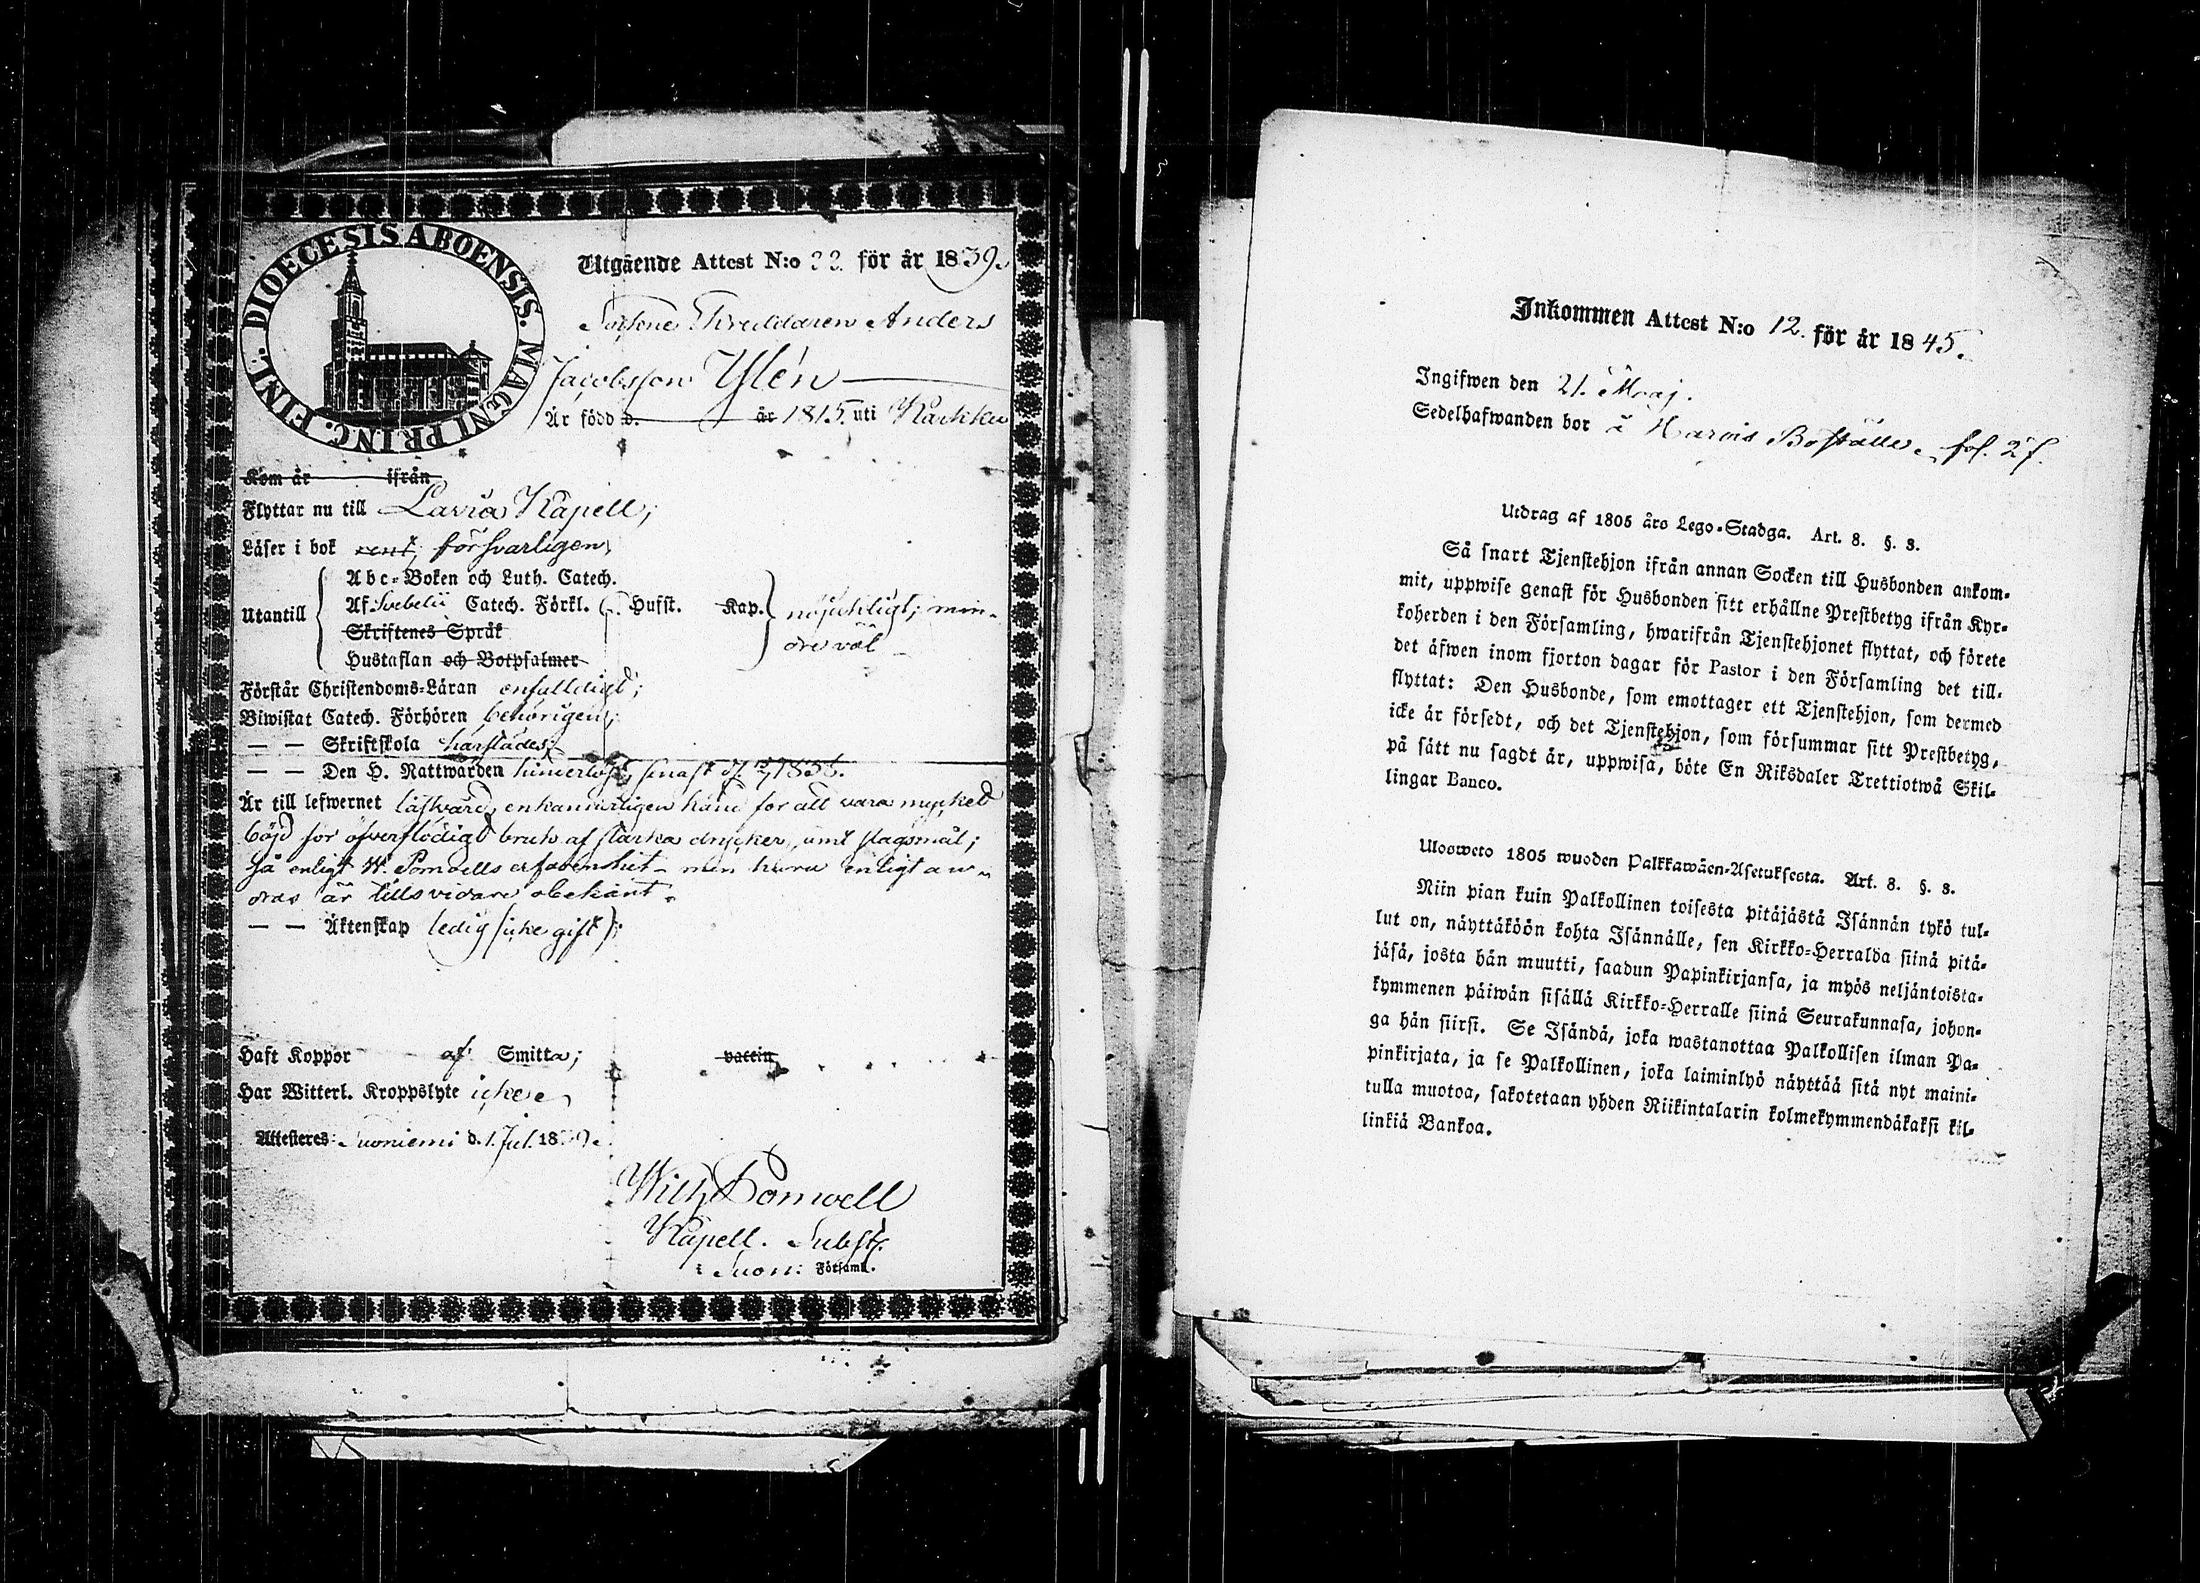 DIOECESIS ABOENSIS. MAGNI PRINC. FINL.
Utgående Attest N:o 22. för år 1839.
Anders
Jacobsson Ylén
Är född d. år 1815 uti Karkku
Kom år ifrån
Flyttar nu till Lavia Kapell;
Läser i bok rent; försvarligen,
Utantill
Abc-Boken och Luth. Catech.
Af Svebelii Catech. Förkl. Husst. Kap.
Skriftenes Språk
Hustaflan och Botpsalmer
nöjaktligt; min-
dre väl
Förstår Christendoms-Läran enfalldigt;
Biwistat Catech. Förhören behörigen;
— — Skriftskola härstädes;
— — Den H. Nattwarden senast
Är till lefwernet
böjd för öfverflödigt bruk af starka drycker, samt slagsmål;
så enligt W. Pomoells erfarenhet - men huru enligt an-
dras är tills vidare obekant.
— — Äktenskap ledig (icke gift);
Haft Koppor af Smitta; vaccin
Har Witterl. Kroppslyte ickese
Attesteres: Suoniemi d. 1. Jul. 1839.
Wilh. Pomoell
Kapell. Subst.
i Suoni: Församl.
Inkommen Attest N:o 12. för år 1845.
Ingifwen den 21. Maj.
Sedelhafwanden bor å Harois Boställe. fol. 27.
Utdrag af 1805 års Lego-Stadga. Art. 8. §. 3.
Så snart Tjenstehjon ifrån annan Socken till Husbonden ankom-
mit, uppwise genast för Husbonden sitt erhållne Prestbetyg ifrån Kyr-
koherden i den Församling, hwarifrån Tjenstehjonet flyttat, och förete
det äfwen inom fjorton dagar för Pastor i den Församling det till-
flyttat: Den Husbonde, som emottager ett Tjenstehjon, som dermed
icke är försedt, och det Tjenstehjon, som försummar sitt Prestbetyg,
på sätt nu sagdt är, uppwisa, böte En Riksdaler Trettiotwå Skil-
lingar Banco.
Ulosweto 1805 wuoden Palkkawäen-Asetuksesta. Art. 8. §. 3.
Niin pian kuin Palkollinen toisesta pitäjästä Isännän tykö tul-
lut on, näyttäköön kohta Isännälle, sen Kirkko-Herralda siinä pitä-
jäsä, josta hän muutti, saadun Papinkirjansa, ja myös neljäntoista-
kymmenen päiwän sisällä Kirkko-Herralle siinä Seurakunnasa, johon-
ga hän siirsi. Se Isändä, joka wastanottaa Palkollisen ilman Pa-
pinkirjata, ja se Palkollinen, joka laiminlyö näyttää sitä nyt maini-
tulla muotoa, sakotetaan yhden Riikintalarin kolmekymmendäkaksi kil-
linkiä Bankoa.